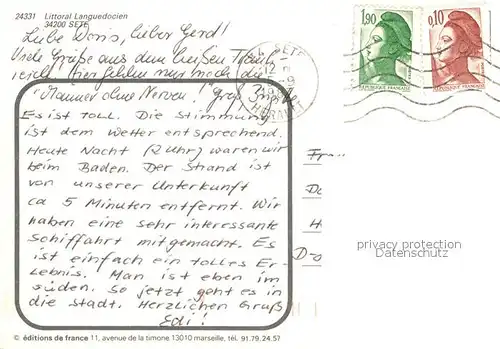 24331 Littoral Languedocien
34200 SETE
Liebe Doris, lieber Gerd!
Viele Grüße aus dem heißen
reich. Hier fehlen nur noch die
"Männer ohne Nerven". Gruß
Es ist toll. Die Stimmung
ist dem Wetter entsprechend.
Heute Nacht (2 Uhr) waren wir
beim Baden. Der Strand ist
von unserer Unterkunft
ca 5 Minuten entfernt. Wir
haben eine sehr interessante
Schiffahrt mitgemacht. Es
ist einfach ein tolles Er-
lebnis. Man ist eben im
Süden. So jetzt geht es in
die Stadt. Herzlichen Gruß
Edi!
© éditions de france 11, avenue de la timone 13010 marseille, tél. 91.79.24.57
34 SETE
HERAULT
1,90
REPUBLIQUE FRANÇAISE
0,10
REPUBLIQUE FRANÇAISE
privacy protection
Datenschutz